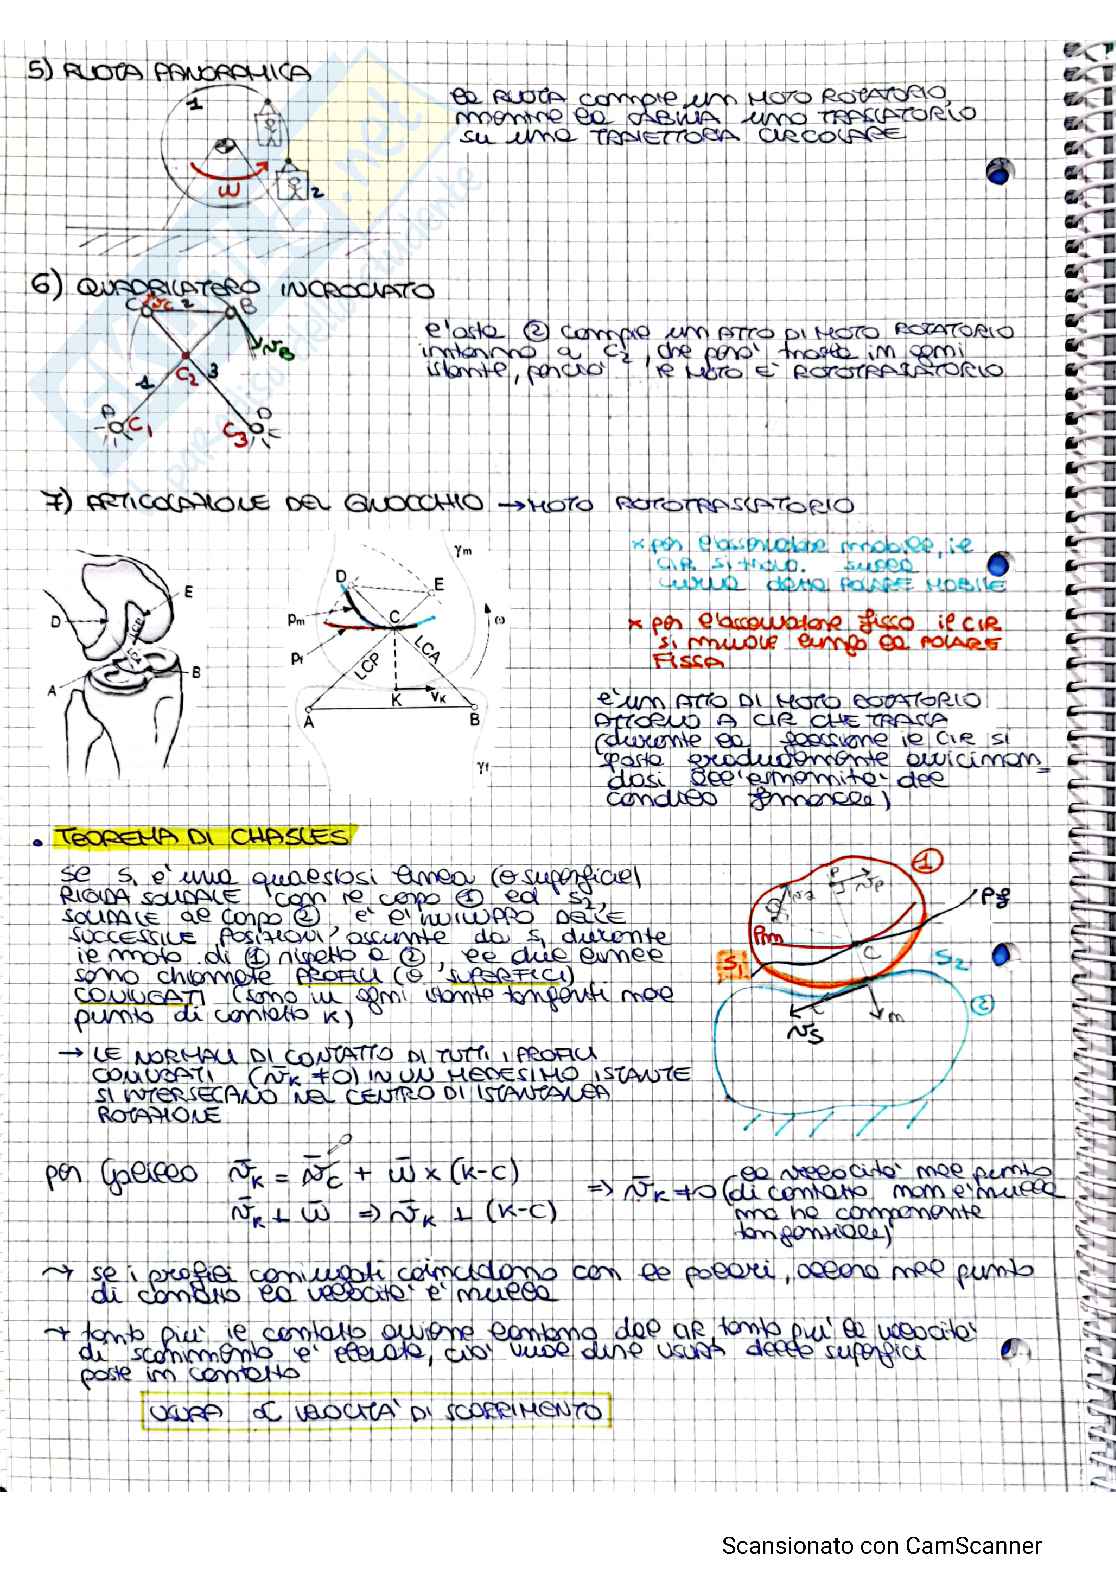 5) RUOTA PANORAMICA
la RUOTA compie un MOTO ROTATORIO,
mentre la CABINA uno TRASLATORIO
su una TRAIETTORIA CIRCOLARE
1
ω
2
6) QUADRILATERO INCROCIATO
C 2 B
l'asta ② compie un ATTO DI MOTO ROTATORIO
intorno a C2, che però trasla in ogni
istante, perciò il MOTO È ROTOTRASLATORIO
1 C2 3
A C1 C3 D
7) ARTICOLAZIONE DEL GINOCCHIO → MOTO ROTOTRASLATORIO
x per l'osservatore mobile, il
CIR si trova sulla
curva detta POLARE MOBILE
x per l'osservatore fisso il CIR
si muove lungo la POLARE
FISSA
D E A B
γm
D E
Pm C ω
Pf LCP LCA
K VK
A B
γf
è un ATTO DI MOTO ROTATORIO
ATTORNO A CIR CHE TRASLA
(durante la flessione il CIR si
sposta gradualmente avvicinan_
dosi all'estremità del
condilo femorale)
• TEOREMA DI CHASLES
Se S1 è una qualsiasi linea (o superficie)
RIGIDA SOLIDALE con il corpo ① ed S2,
SOLIDALE al corpo ② è l'INVILUPPO DELLE
SUCCESSIVE POSIZIONI assunte da S1 durante
il moto di ① rispetto a ②, le due linee
sono chiamate PROFILI (o SUPERFICI)
CONIUGATI (sono in ogni istante tangenti nel
punto di contatto K)
1
Pf
Pm
C
S1
S2
2
n
vS
→ LE NORMALI DI CONTATTO DI TUTTI I PROFILI
CONIUGATI (v̄K ≠ 0) IN UN MEDESIMO ISTANTE
SI INTERSECANO NEL CENTRO DI ISTANTANEA
ROTAZIONE
per Galileo v̄K = v̄C + ω̄ × (K-C)
0
v̄K ⊥ ω̄ ⇒ v̄K ⊥ (K-C)
⇒ v̄K ≠ 0 (la velocità nel punto
di contatto non è nulla
ma ha componente
tangenziale)
→ se i profili coniugati coincidono con le polari, allora nel punto
di contatto la velocità è nulla
→ tanto più il contatto avviene lontano dal CIR, tanto più la velocità
di scorrimento è elevata, ciò vuol dire usura delle superfici
poste in contatto
USURA ∝ VELOCITÀ DI SCORRIMENTO
Scansionato con CamScanner